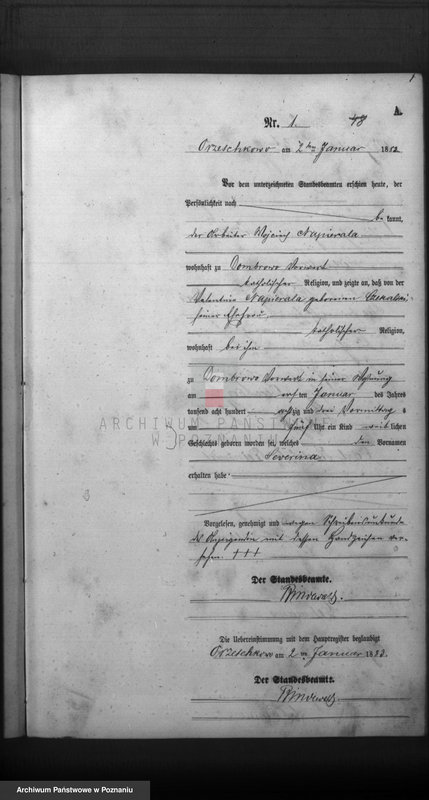 A.
Nr. 1.
Orzeschkowo am 2ten Januar 1883
Vor dem unterzeichneten Standesbeamten erschien heute, der
Persönlichkeit nach
bekannt,
der Arbeiter Wojciech Napierala
wohnhaft zu Dombrowo Vorwerk
katholischer Religion, und zeigte an, daß von der
Valentine Napierala geborenen
seiner Ehefrau,
katholischer Religion,
wohnhaft bei ihm
zu Dombrowo Vorwerk in seiner Wohnung
am ersten Januar des Jahres
tausend acht hundert achtzig und drei Vormittag s
um fünf Uhr ein Kind weiblichen
Geschlechts geboren worden sei, welches den Vornamen
Severina
erhalten habe
Vorgelesen, genehmigt und wegen Schreibensunkunde
des Anzeigenden mit dessen Handzeichen ver-
sehen. +++
Der Standesbeamte.
Die Uebereinstimmung mit dem Hauptregister beglaubigt
Orzeschkowo am 2ten Januar 1883.
Der Standesbeamte.
ARCHIWUM PAŃSTWOWE
W POZNANIU
Archiwum Państwowe w Poznaniu